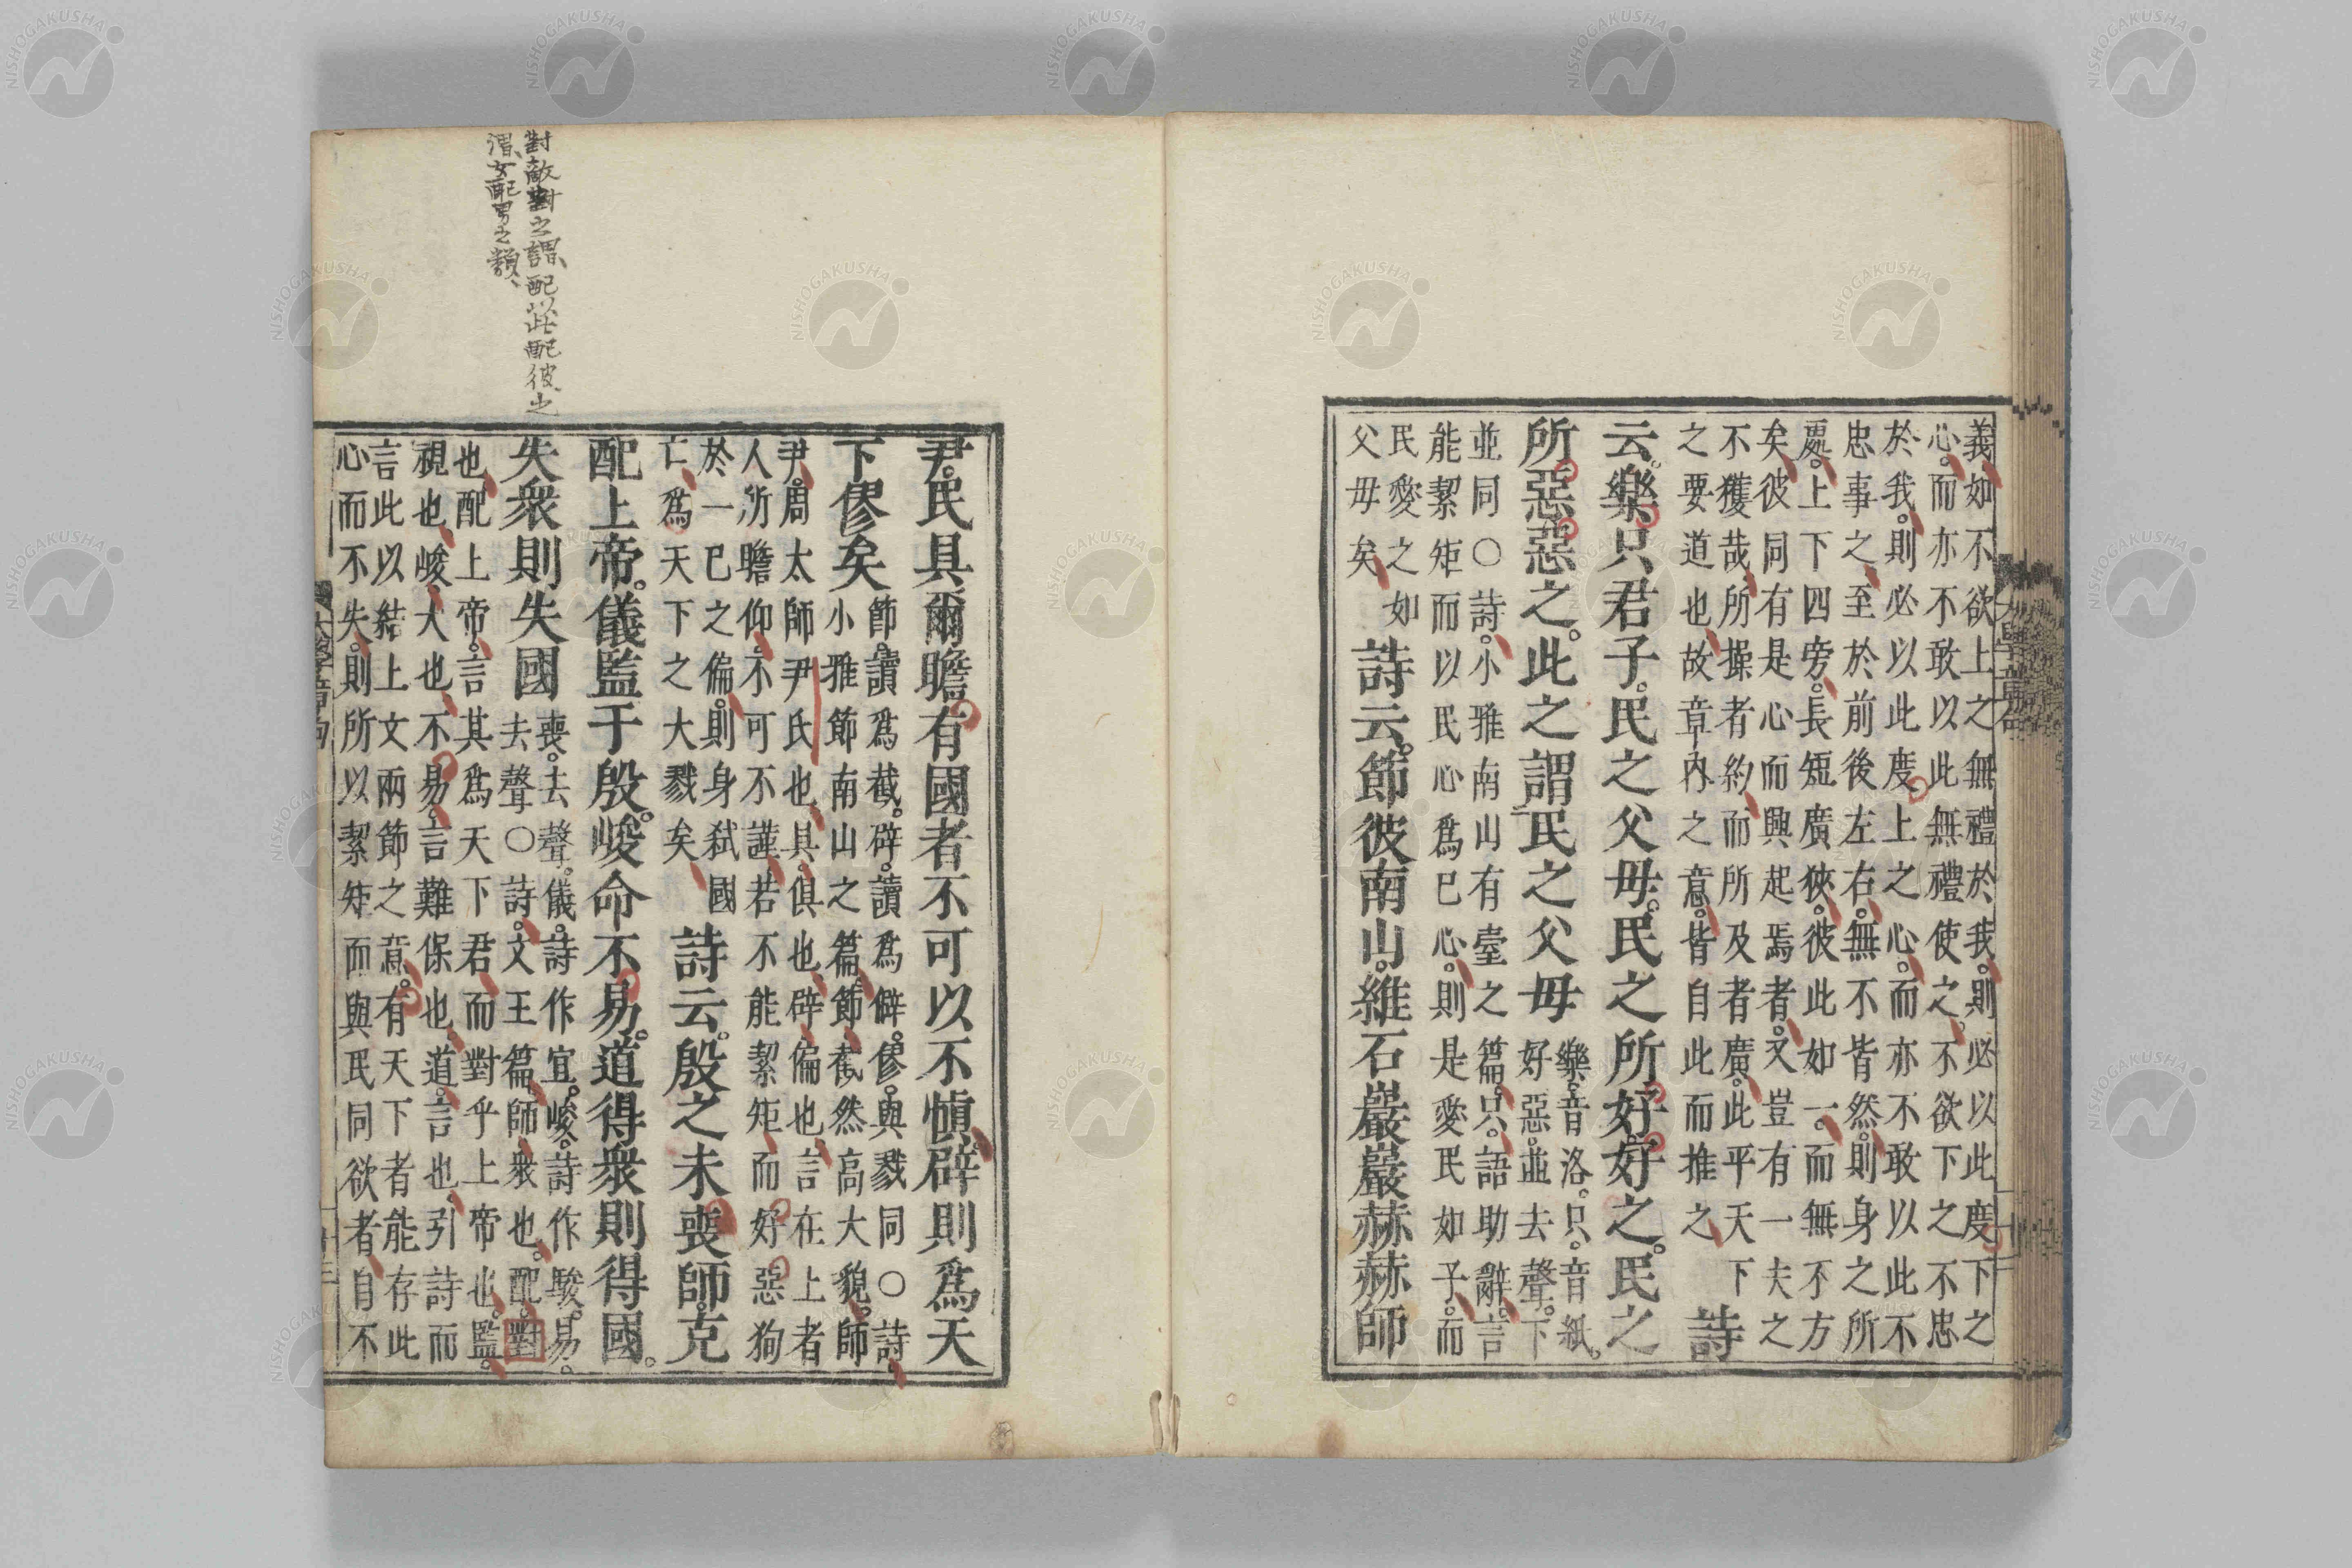 義如不欲上之無禮於我。則必以此度下之
心。而亦不敢以此無禮使之。不欲下之不忠
於我。則必以此度上之心。而亦不敢以此不
忠事之至於前後左右。無不皆然。則身之所
處。上下四旁。長短廣狹。彼此如一。而無不方
矣彼同有是心而興起焉者。又豈有一夫之
不獲哉所操者約而所及者廣。此平天下
之要道也故章內之意。皆自此而推之
詩
云。樂只君子。民之父母。民之所好好之。民之
所惡惡之。此之謂民之父母
樂。音洛。只。音紙。
好惡。並去聲。下
並同○詩。小雅南山有臺之篇。只。語助辭。言
能絜矩而以民心爲己心。則是愛民如子。而
民愛之如
父母矣
詩云。節彼南山。維石巖巖赫赫師
大學章句
對敵對之謂、配以此配彼之
謂、女配男之類、
尹。民具爾瞻有國者不可以不愼。辟則爲天
下僇矣
節。讀爲截。辟。讀爲僻。僇。與戮同○詩。
小雅節南山之篇。節。截然高大貌。師
尹。周太師尹氏也。具。俱也。辟。偏也。言在上者
人所瞻仰。不可不謹。若不能絜矩而好惡狥
於一己之偏。則身弒國
亡爲天下之大戮矣
詩云。殷之未喪師。克
配上帝。儀監于殷。峻命不易。道得衆則得國。
失衆則失國
喪。去聲。儀。詩作宜。峻。詩作駿。易。
去聲○詩。文王篇。師。衆也。配。對
也配上帝。言其爲天下君而對乎上帝也。監。
視也峻。大也不易。言難保也。道。言也。引詩而
言此以結上文兩節之意。有天下者能存此
心而不失。則所以絜矩而與民同欲者自不
大學章句